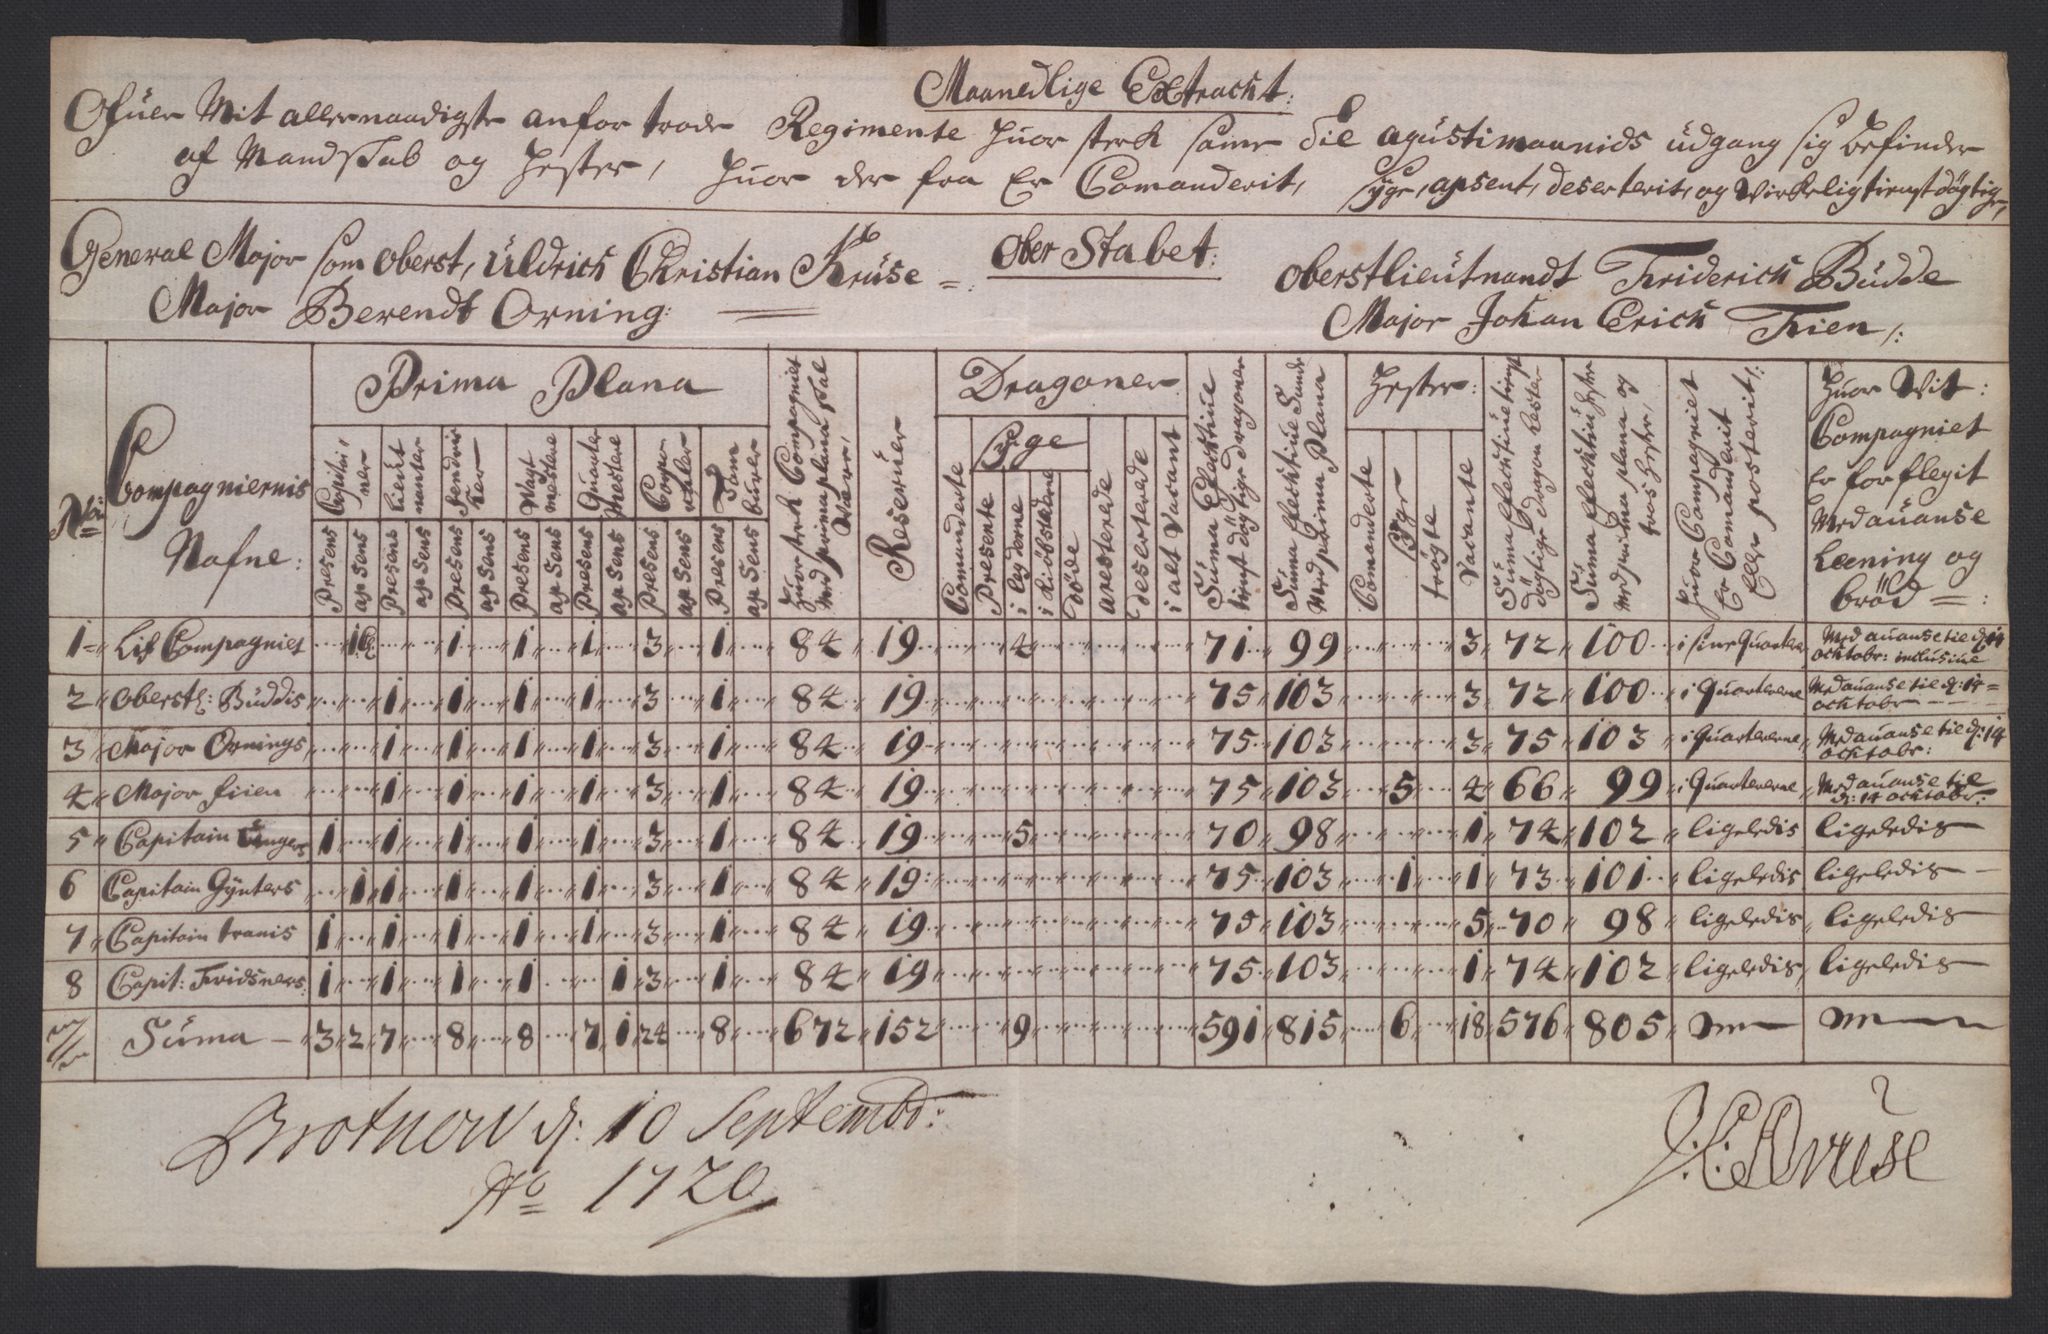 Maanedlige Extracht:
Ofuer Mit allernaadigste anfortroede Regimente huor sterk samme Til agustimaanids üdgang sig befinder
af Mandskab og hester, huor der fra Er Comanderit, syge, apsent, deserterit, og Virkelig tienstdögtige,
General Major som oberst, Üldrich Christian Krüse =: Ober Stabet: Oberstlieütnandt Friderich Büdde
Major Berendt Orning: Major Johan Erich Frien /:
No: Compagniernis Nafne:
Prima Plana
Capitainer, Lieutnanter Fendricker Wagtmestere Quartermestere Corporaler Tambuurer
Presens apsens Presens apsens Presens apsens Presens apsens Presens apsens Presens apsens Presens apsens
Huor sterk Compagniet Med prima plana skal Være,
Reseruer
Dragoner
Comanderte
Syge
Presente i Leyderne i Kiöbstederne
döde
aresterede
deserterede
i alt Vacant
Süma Efecktiue tienst dögtige dragoner
Süma efecktiue Sunde Med prima Plana
Hester:
Comanderte
Syge
trögte
Vacante
Süma efecktiue tienst dögtige dragon hester
Süma efecktiue hester med prima plana og tros hester,
huor Compagniet Er Comanderit Eller posterit /:
Huor Vit: Compagniet Er forflegit Med auanse Leening og bröd =:
1= Lif Compagniet 1 1 1 1 3 1 84 19 4 71 99 3 72 100 i sine Quarterer Med auanse til d: 14 ocktobr: inclusiue
2 Oberstl: Büddis 1 1 1 1 3 1 84 19 75 103 3 72 100 i Quartererne Med auanse til d: 14 = ocktobr
3 Major Ornings 1 1 1 1 3 1 84 19 75 103 3 75 103 i Quartererne Med auanse til d: 14 ocktobr:
4 Major friien 1 1 1 1 3 1 84 19 75 103 5 4 66 99 i Quartererne Med auanse til d: 14 ocktobr:
5 Capitain Ungers 1 1 1 1 1 3 1 84 19 5 70 98 1 74 102 ligeledis ligeledis
6 Capitain Gÿnters 1 1 1 1 1 3 1 84 19 75 103 1 1 73 101 ligeledis ligeledis
7 Capitain tranis 1 1 1 1 1 3 1 84 19 75 103 5 70 98 ligeledis ligeledis
8 Capit: Fridsners: 1 1 1 1 1 3 1 84 19 75 103 1 74 102 ligeledis ligeledis
Süma 3 2 7 8 8 7 1 24 8 672 152 9 591 815 6 18 576 805
d: 10 Septembr:
Ao 1720
Krüse